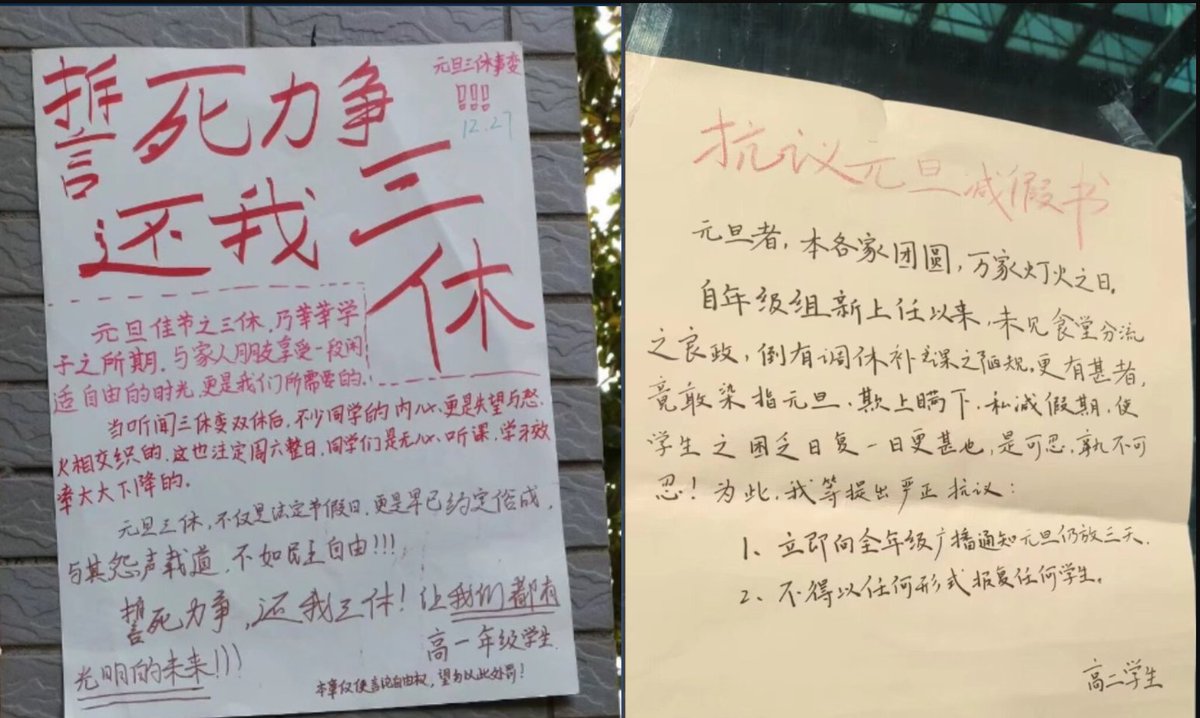 誓死力争
还我三休
元旦三休事变
!!!
12.27
元旦佳节之三休，乃莘莘学
子之所期，与家人朋友享受一段闲
适自由的时光，更是我们所需要的。
当听闻三休变双休后，不少同学的内心，更是失望与怒
火相交织的，这也注定周六整日，同学们是无心听课，学习效
率大大下降的。
元旦三休，不仅是法定节假日，更是早已约定俗成，
与其怨声载道，不如民主自由!!!
誓死力争，还我三休！让我们都有
光明的未来!!!
高一年级学生
本章仅使言论自由权，望勿以此处罚！
抗议元旦减假书
元旦者，本各家团圆，万家灯火之日。
自年级组新上任以来，未见食堂分流
之良政，倒有调休补课之陋规，更有甚者，
竟敢染指元旦，欺上瞒下，私减假期，使
学生之困乏日复一日更甚也，是可忍，孰不可
忍！为此，我等提出严正抗议：
1、立即向全年级广播通知元旦仍放三天.
2、不得以任何形式报复任何学生。
高二学生